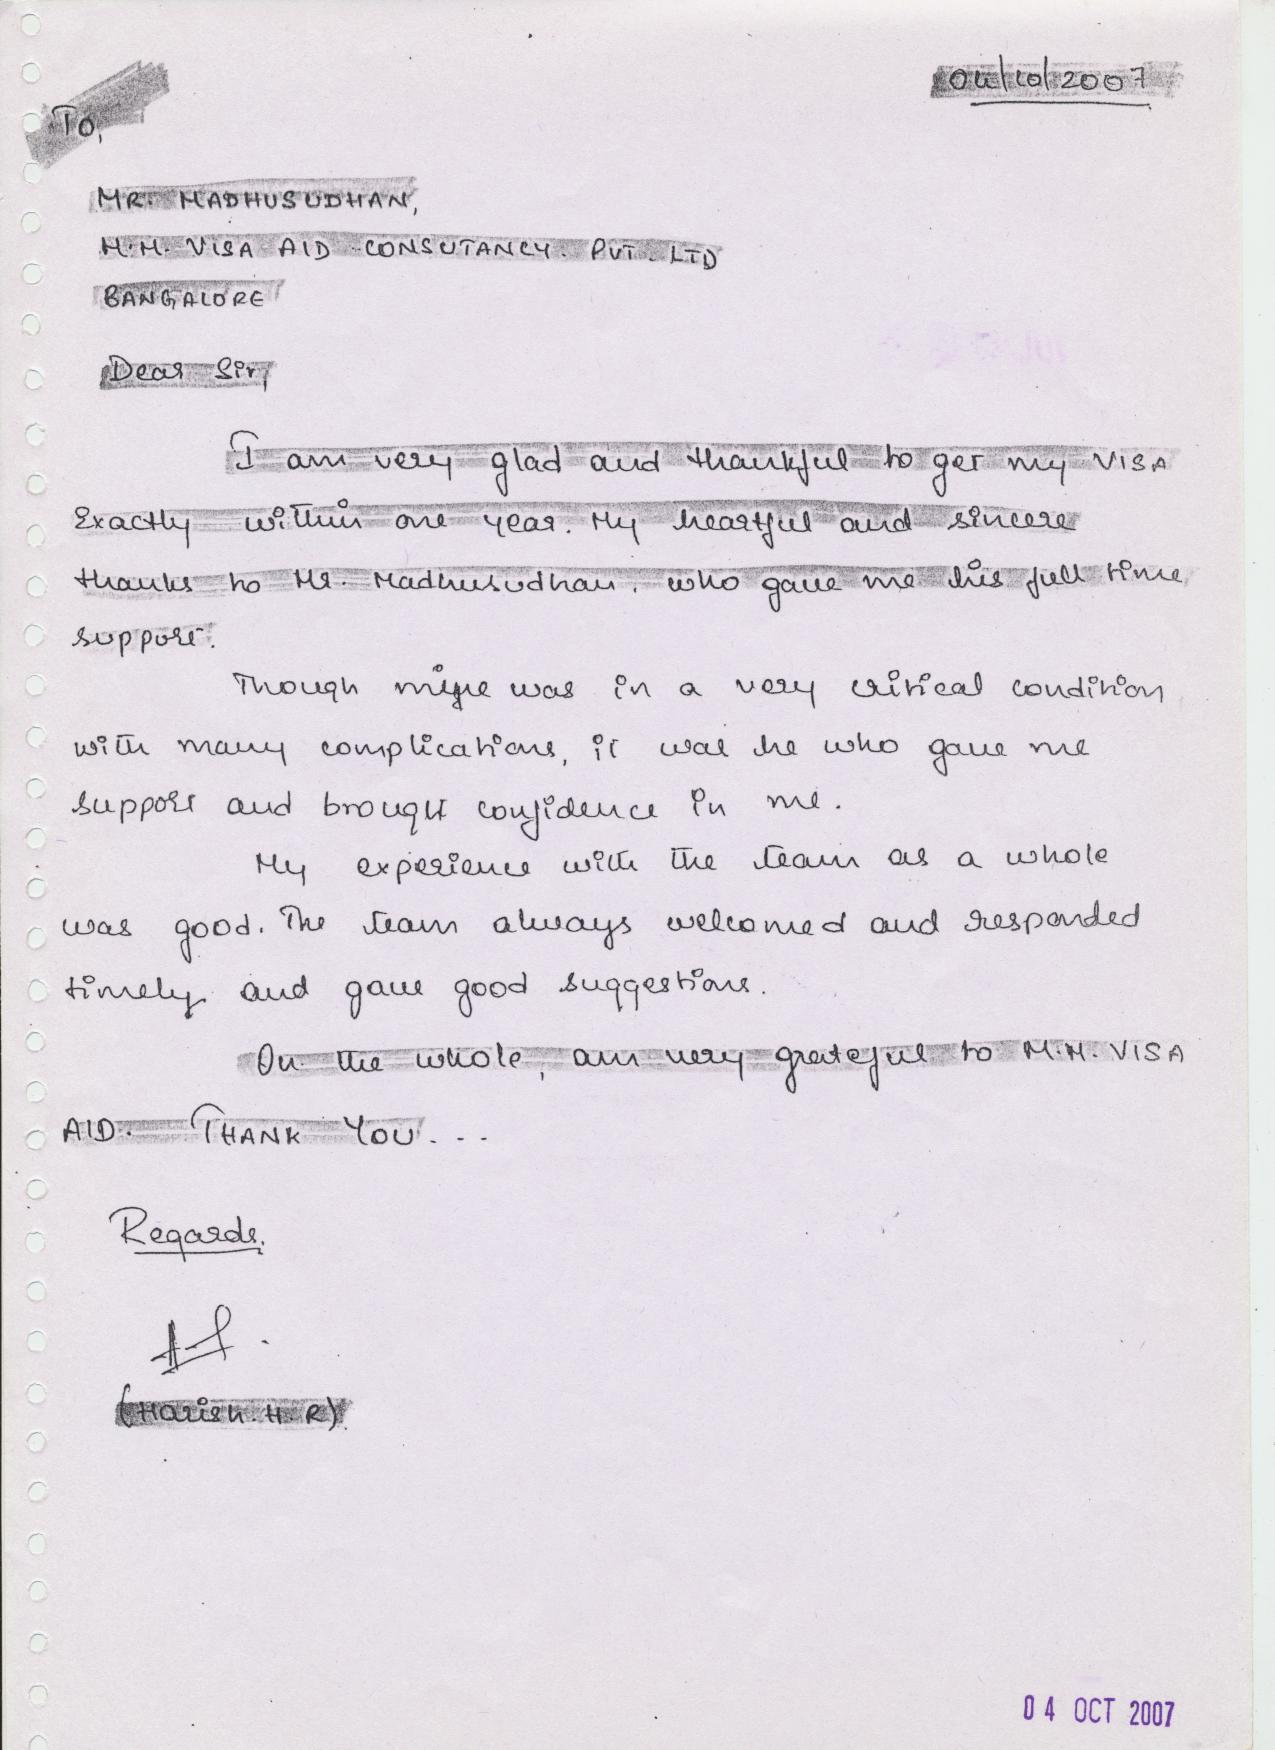 04/10/2007
To,
MR. MADHUSUDHAN,
M.M. VISA AID CONSUTANCY. PVT. LTD
BANGALORE
Dear Sir,
I am very glad and thankful to get my VISA
Exactly within one year. My heartful and sincere
thanks to Mr. Madhusudhan. who gave me his full time
support.
Though mine was in a very critical condition
with many complications, it was he who gave me
support and brought confidence in me.
My experience with the team as a whole
was good. The team always welcomed and responded
timely and gave good suggestions.
On the whole, am very grateful to M.M. VISA
AID. THANK YOU...
Regards,
(Harish. H. R)
04 OCT 2007